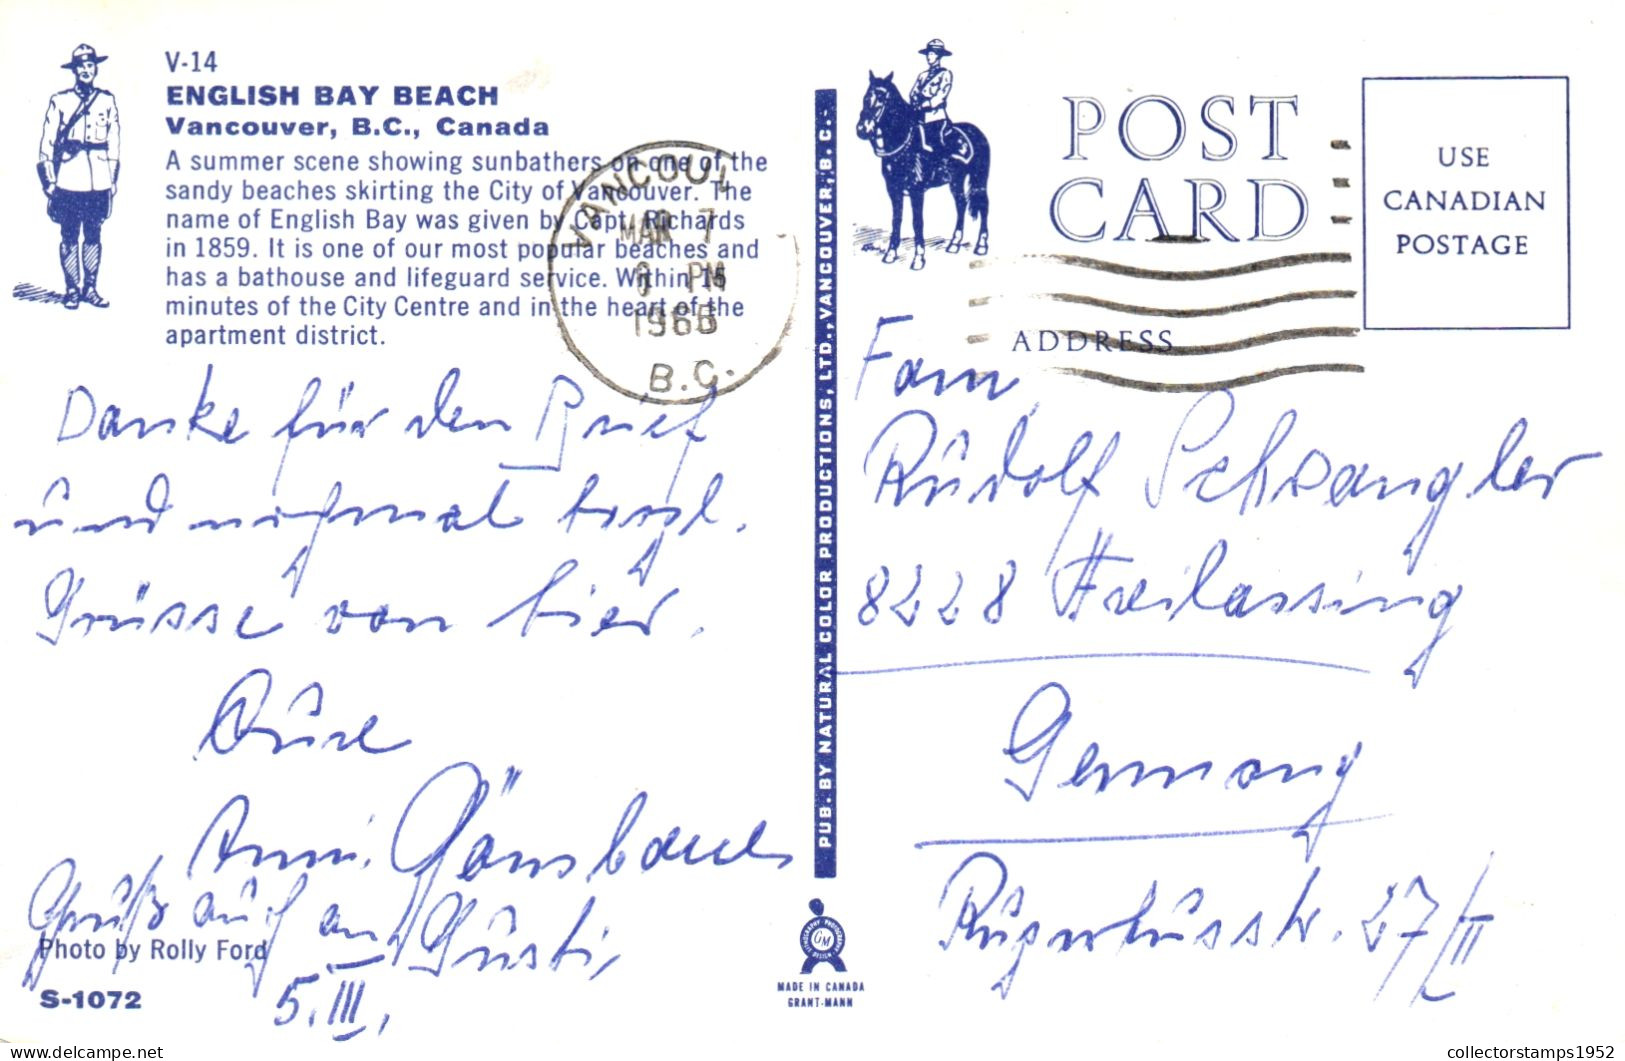 V-14
ENGLISH BAY BEACH
Vancouver, B.C., Canada
A summer scene showing sunbathers on one of the
sandy beaches skirting the City of Vancouver. The
name of English Bay was given by Capt. Richards
in 1859. It is one of our most popular beaches and
has a bathouse and lifeguard service. Within 15
minutes of the City Centre and in the heart of the
apartment district.
VANCOUV
MAR 7
PM
1966
B.C.
Danke für den Brief
und nochmal herzl.
Grüsse von hier.
Eure
Anni Gänsbauer
Gruß auch an Gusti,
5. III.
Photo by Rolly Ford
S-1072
PUB. BY NATURAL COLOR PRODUCTIONS, LTD., VANCOUVER, B. C.
GM
MADE IN CANADA
GRANT-MANN
POST
CARD
USE
CANADIAN
POSTAGE
ADDRESS
Fam.
Rudolf
8228 Freilassing
Germany
27/II
collectorstamps1952